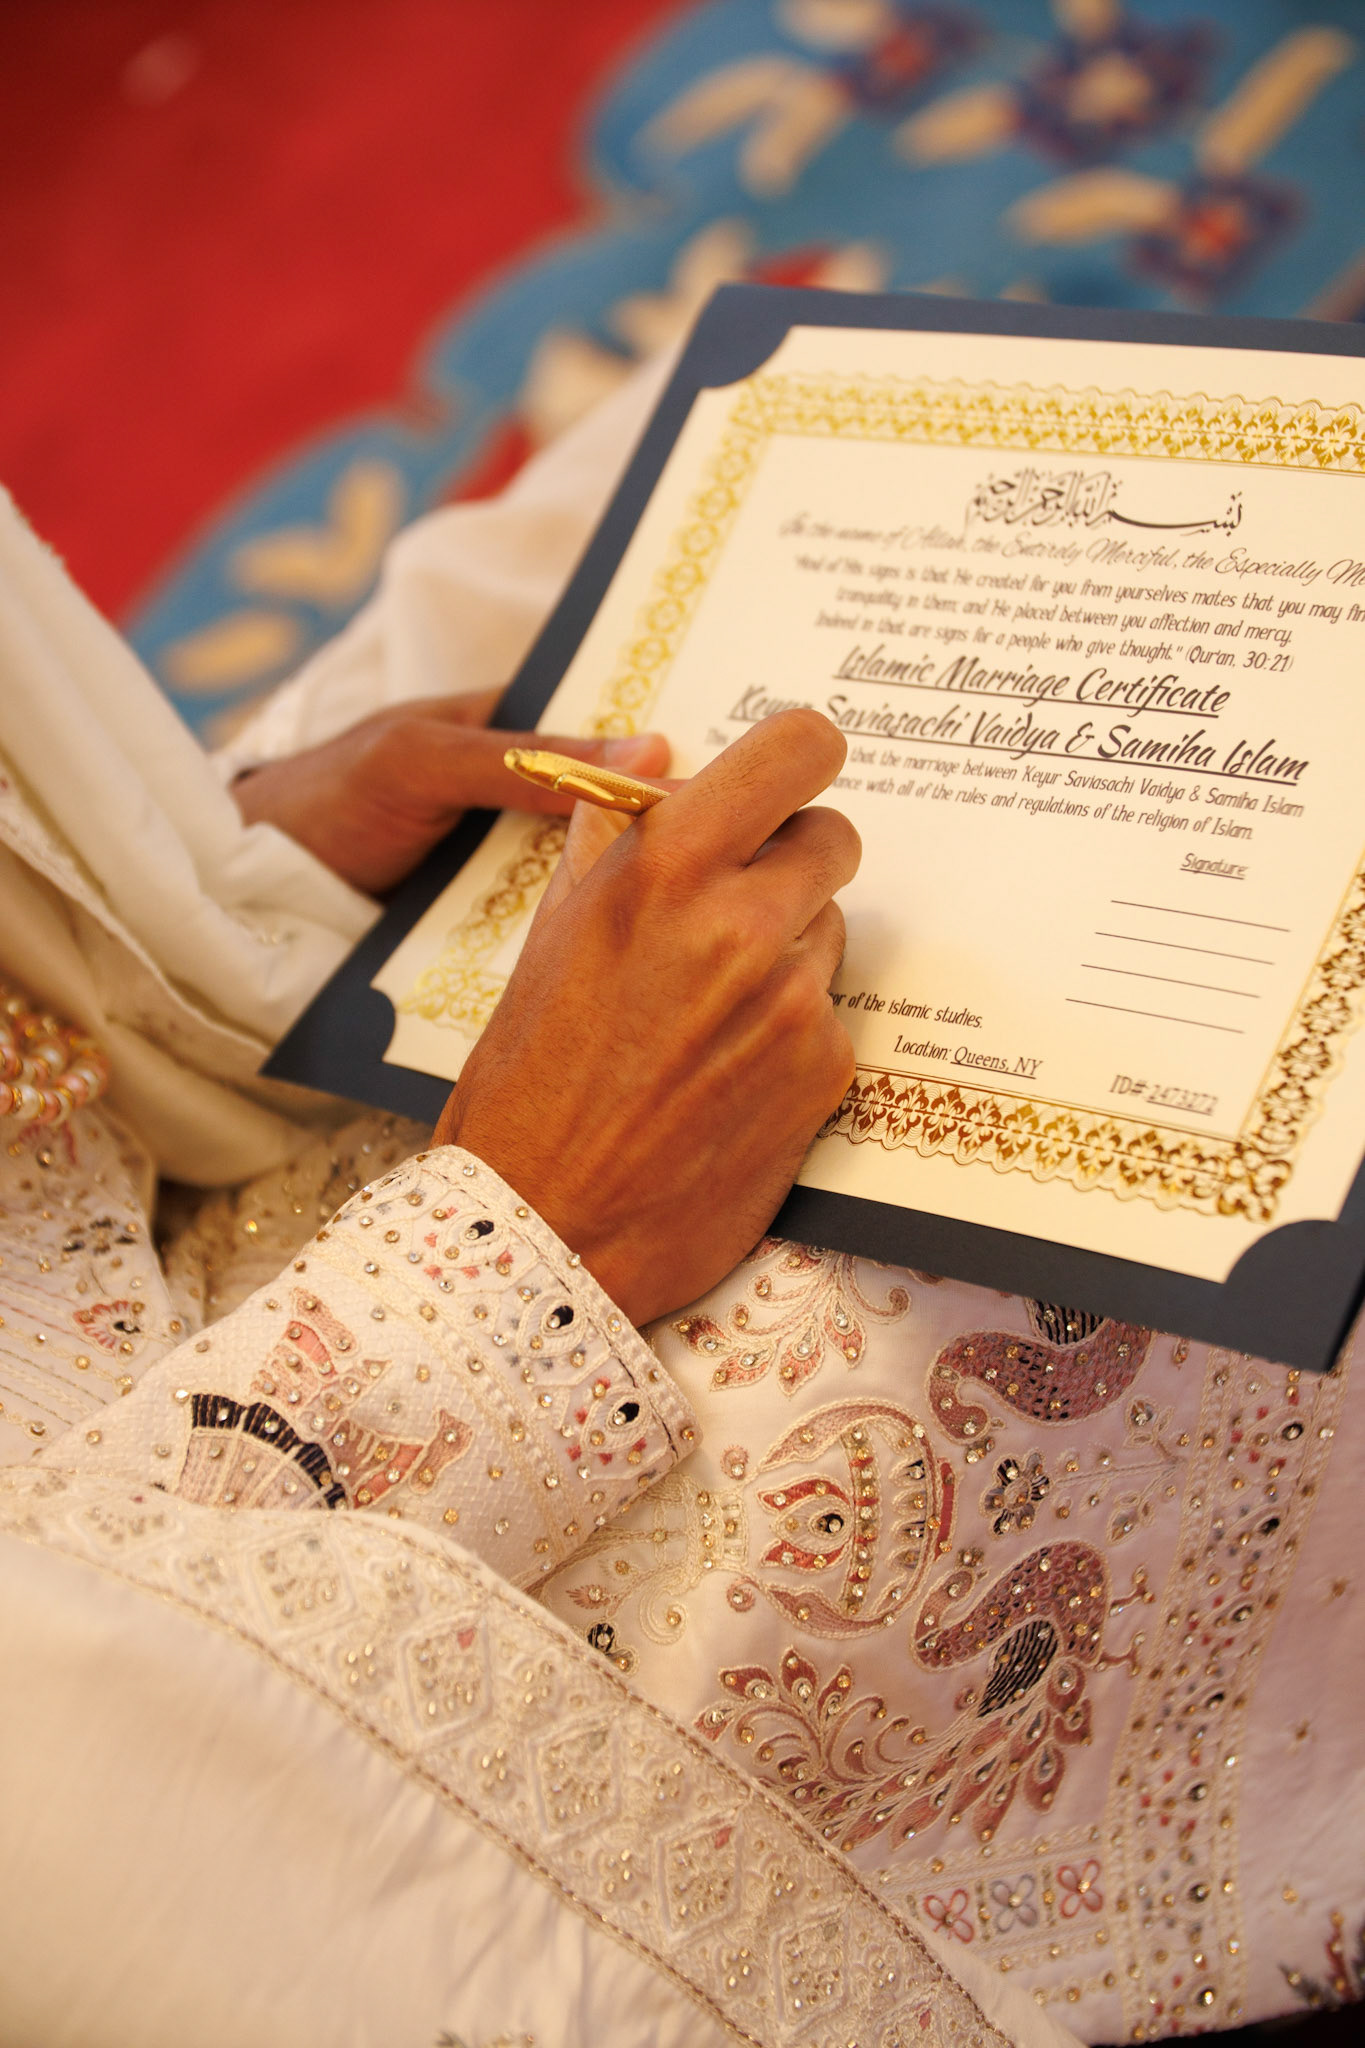 بسم الله الرحمن الرحيم
In the name of Allah, the Entirely Merciful, the Especially
"And of His signs is that He created for you from yourselves mates that you may
tranquility in them; and He placed between you affection and mercy.
Indeed in that are signs for a people who give thought." (Qur'an, 30:21)
Islamic Marriage Certificate
Keyur Saviasachi Vaidya & Samiha Islam
that the marriage between Keyur Saviasachi Vaidya & Samiha Islam
with all of the rules and regulations of the religion of Islam.
Signature:
of the islamic studies.
Location: Queens, NY
ID#: 2473272